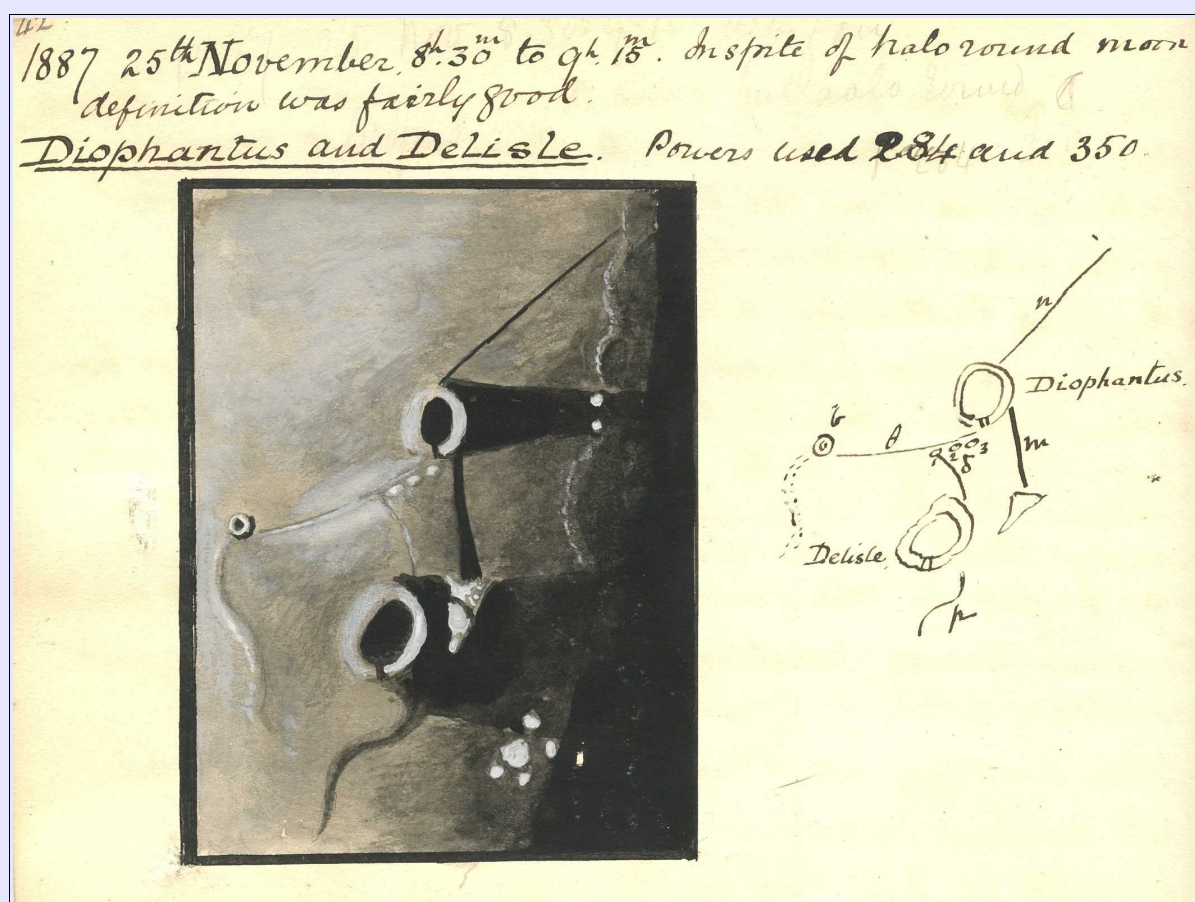 42
1887 25th November. 8h. 30m to 9h. 15m. Inspite of halo round moon
definition was fairly good.
Diophantus and Delisle. Powers used 284 and 350.
n
Diophantus.
b
θ
m
9 2 8 3
Delisle
p